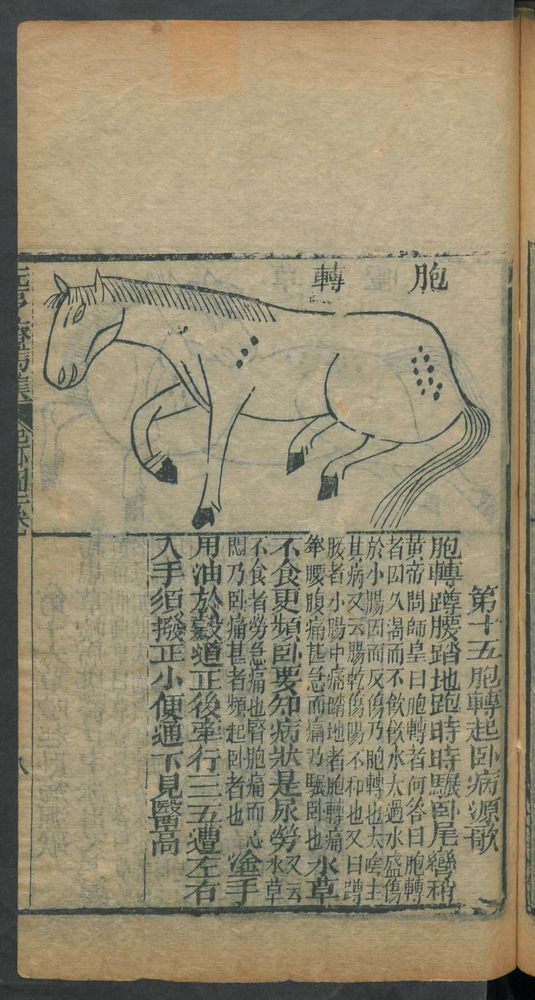 胞轉
第十五胞轉起卧病源歌
胞轉蹲腰踏地跑時時驟卧尾彎稍
黃帝問師皇曰胞轉者何答曰胞轉
者因久渴而不飲飲水太過水盛傷
於小腸因而反傷乃胞轉也大啌主
其病又云腸乾傷陽不和也又曰蹲
腰者小腸中痛踏地者胞轉痛
腰腹痛甚急而痛乃驟卧也水草
不食更頻卧要知病狀是尿勞又云水草
不食者勞急痛也腎胞痛而心
悶乃卧痛甚者頻起卧者也塗手
用油於穀道正後牽行三五遭左右
入手須撥正小便通下見醫高
八